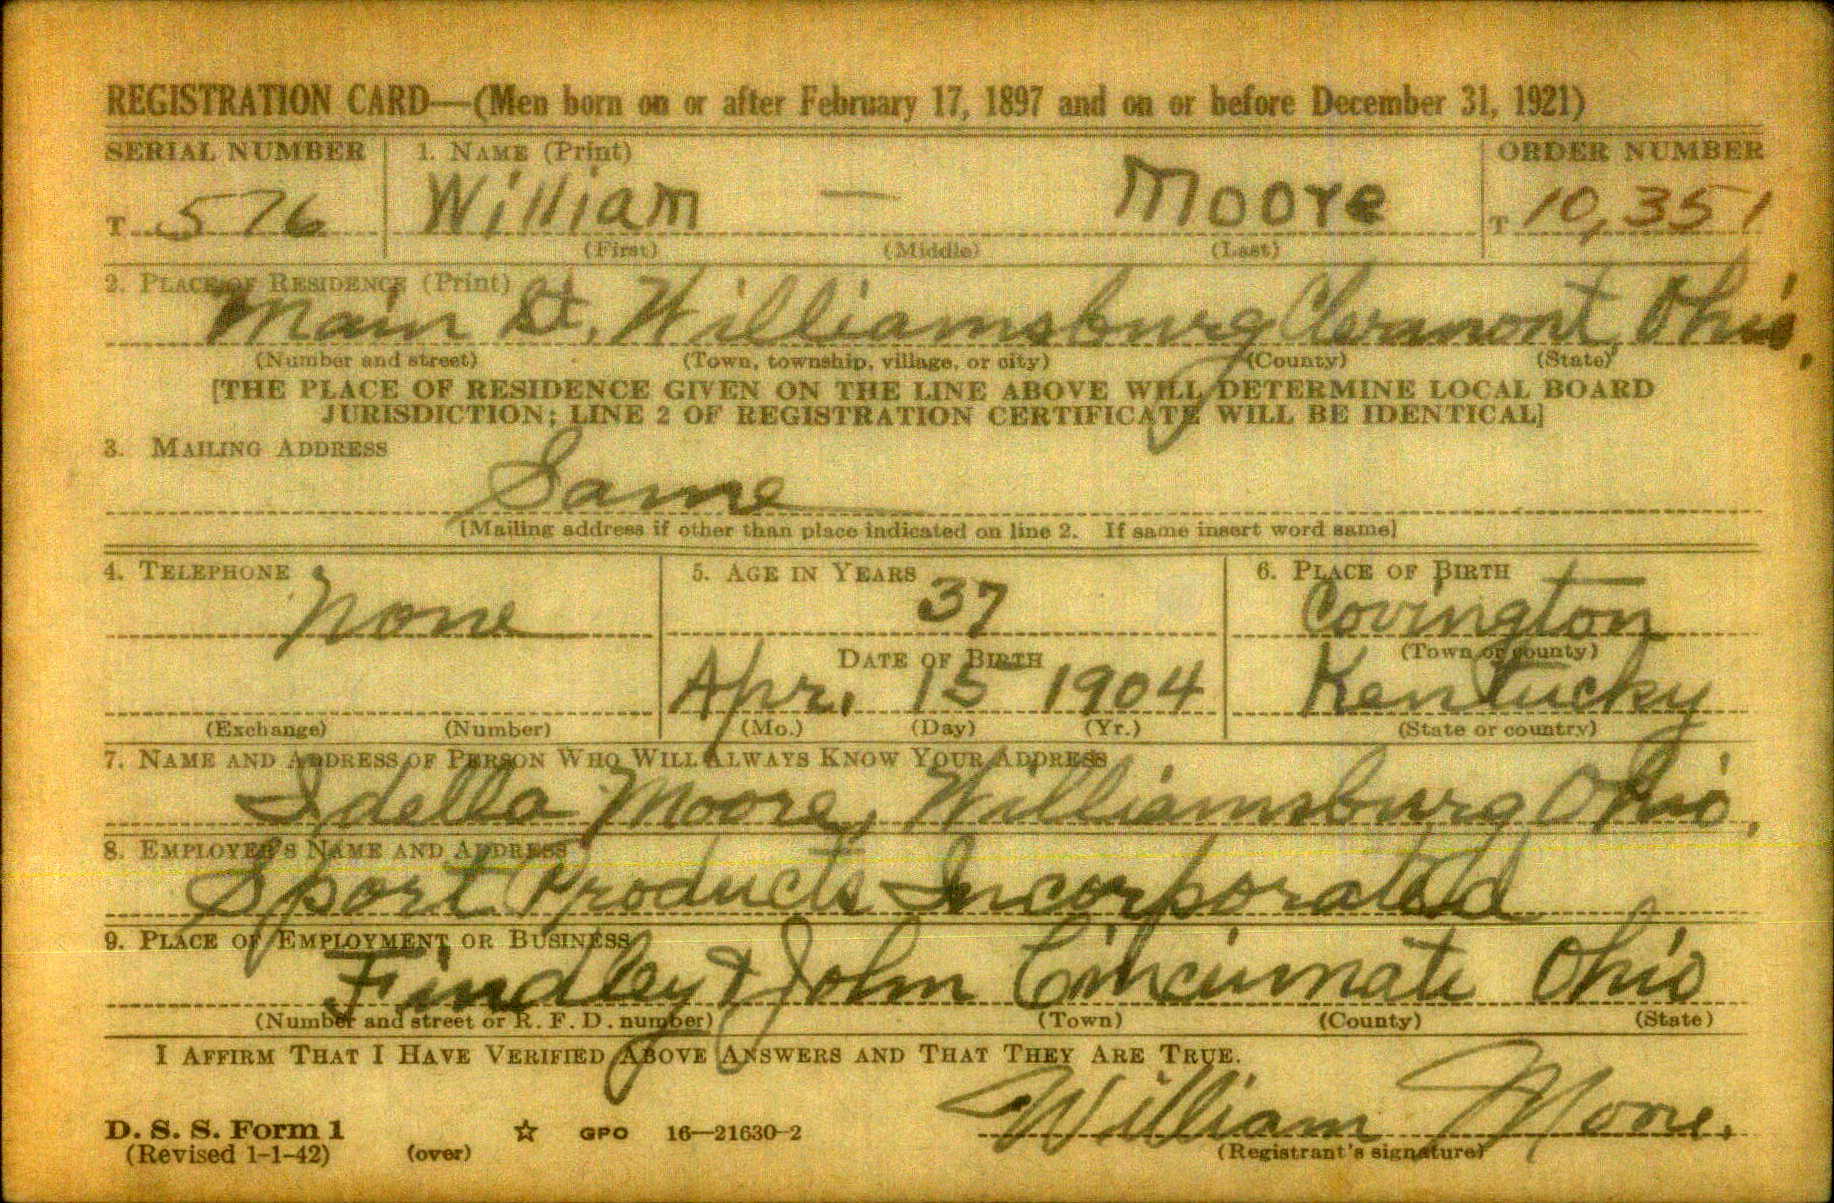 REGISTRATION CARD—(Men born on or after February 17, 1897 and on or before December 31, 1921)
SERIAL NUMBER 1. NAME (Print) ORDER NUMBER
T 576 William — Moore T 10,351
(First) (Middle) (Last)
2. PLACE OF RESIDENCE (Print)
Main St, Williamsburg Clermont, Ohio.
(Number and street) (Town, township, village, or city) (County) (State)
[THE PLACE OF RESIDENCE GIVEN ON THE LINE ABOVE WILL DETERMINE LOCAL BOARD
JURISDICTION; LINE 2 OF REGISTRATION CERTIFICATE WILL BE IDENTICAL]
3. MAILING ADDRESS
Same
[Mailing address if other than place indicated on line 2. If same insert word same]
4. TELEPHONE 5. AGE IN YEARS 6. PLACE OF BIRTH
None 37 Covington
DATE OF BIRTH (Town or county)
Apr. 15 1904 Kentucky
(Exchange) (Number) (Mo.) (Day) (Yr.) (State or country)
7. NAME AND ADDRESS OF PERSON WHO WILL ALWAYS KNOW YOUR ADDRESS
Idella Moore, Williamsburg Ohio.
8. EMPLOYER'S NAME AND ADDRESS
Sport Products Incorporated
9. PLACE OF EMPLOYMENT OR BUSINESS
Findley & John Cincinnati Ohio
(Number and street or R. F. D. number) (Town) (County) (State)
I AFFIRM THAT I HAVE VERIFIED ABOVE ANSWERS AND THAT THEY ARE TRUE.
William Moore.
D. S. S. Form 1 ☆ GPO 16—21630-2
(Revised 1-1-42) (over) (Registrant's signature)